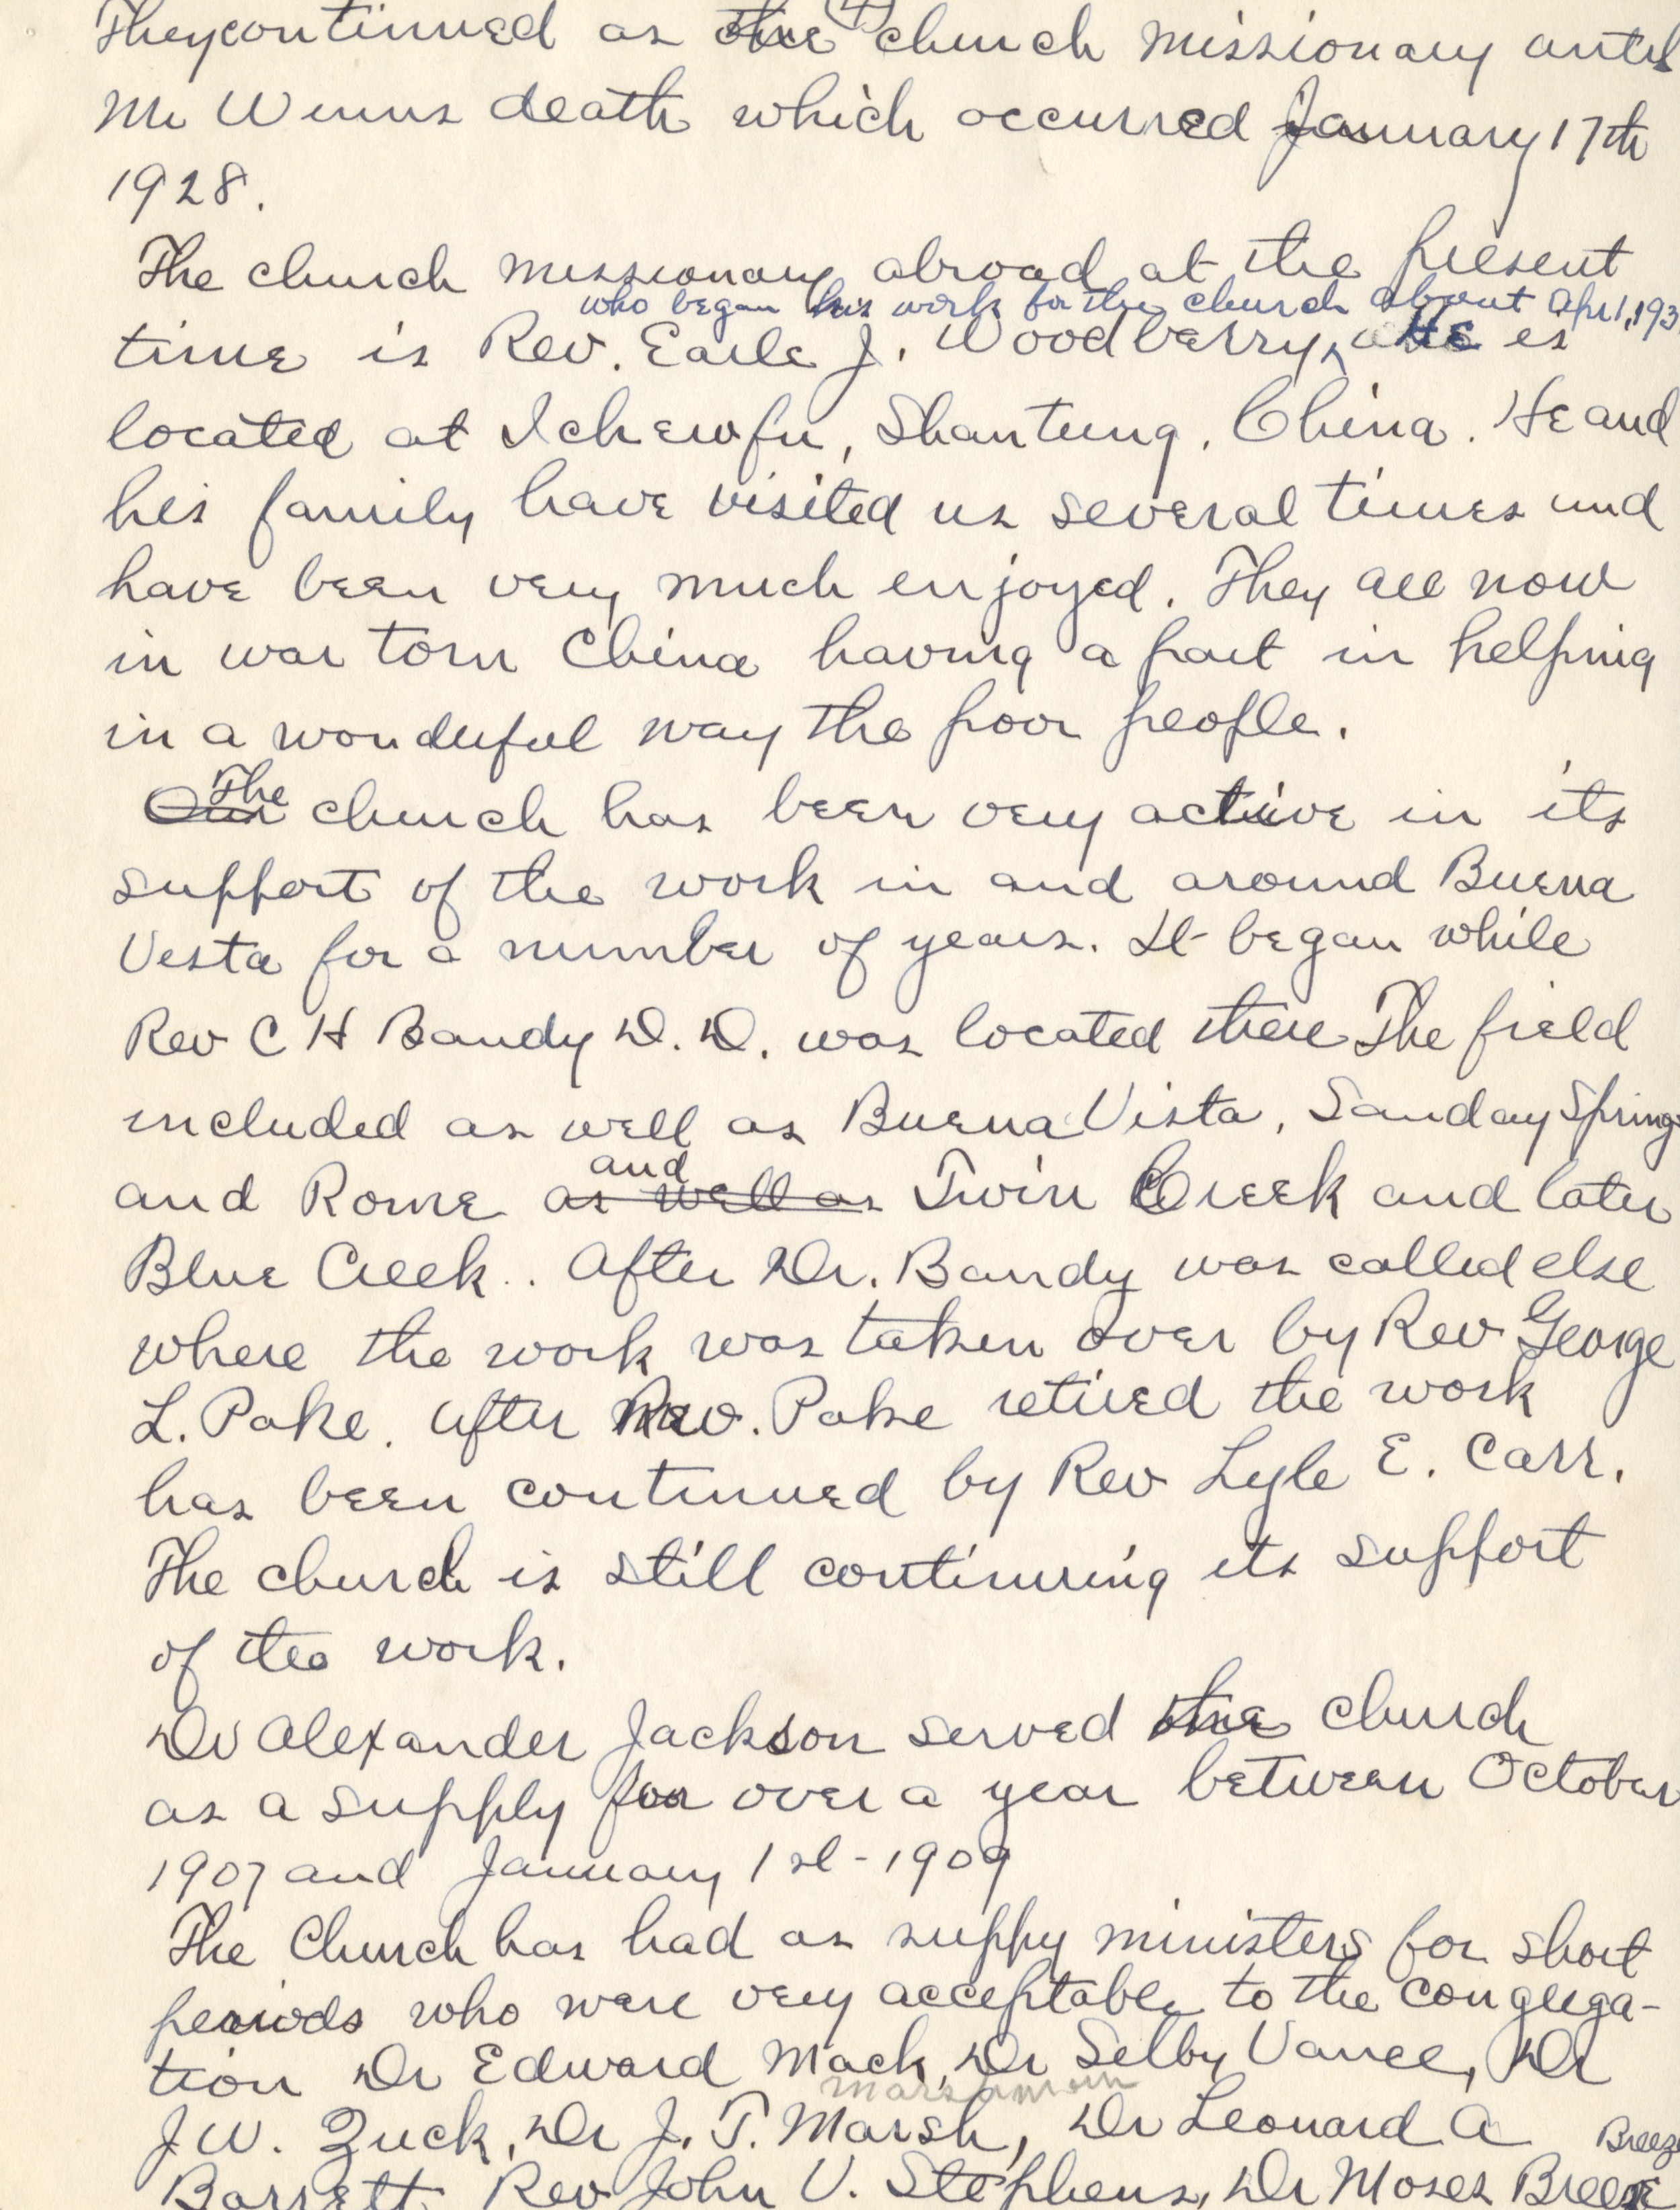 (4)
They continued as the church missionary until
Mr Winns death which occurred January 17th
1928.
The church missionary abroad at the present
who began his work for the church about Apr 1, 193
time is Rev. Earle J. Woodberry, He is
located at Ichewfu, Shantung, China. He and
his family have visited us several times and
have been very much enjoyed. They all now
in war torn China having a part in helping
in a wonderful way the poor people.
The
Our church has been very active in its
support of the work in and around Buena
Vesta for a number of years. It began while
Rev C H Bandy D. D. was located there The field
included as well as Buena Vista, Sanday Springs
and
and Rome as well as Twin Creek and later
Blue Creek.. After Dr. Bandy was called else
where the work was taken over by Rev George
L. Pake. After Rev. Pake retired the work
has been continued by Rev Lyle E. Carr.
The church is still continuing its support
of the work.
Dr Alexander Jackson served the church
as a supply for over a year between October
1907 and January 1st - 1909
The Church has had as suppy ministers for short
periods who were very acceptable to the congrega-
tion Dr Edward Mack, Dr Selby Vance, Dr
J W. Zuck, Dr J. T. Marsh, Dr Leonard A
Breeze
Barrett Rev John V. Stephens, Dr Moses Breeze